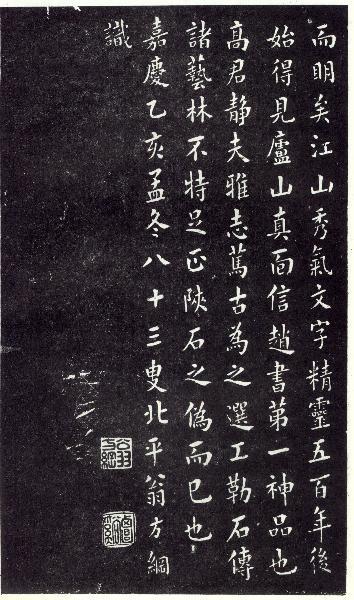 而明矣江山秀氣文字精靈五百年後
始得見廬山真面信趙書第一神品也
高君静夫雅志篤古為之選工勒石傳
諸藝林不特足正陝石之偽而已也
嘉慶乙亥孟冬八十三叟北平翁方綱
識